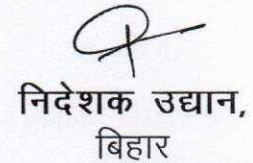 निदेशक उद्यान,
बिहार